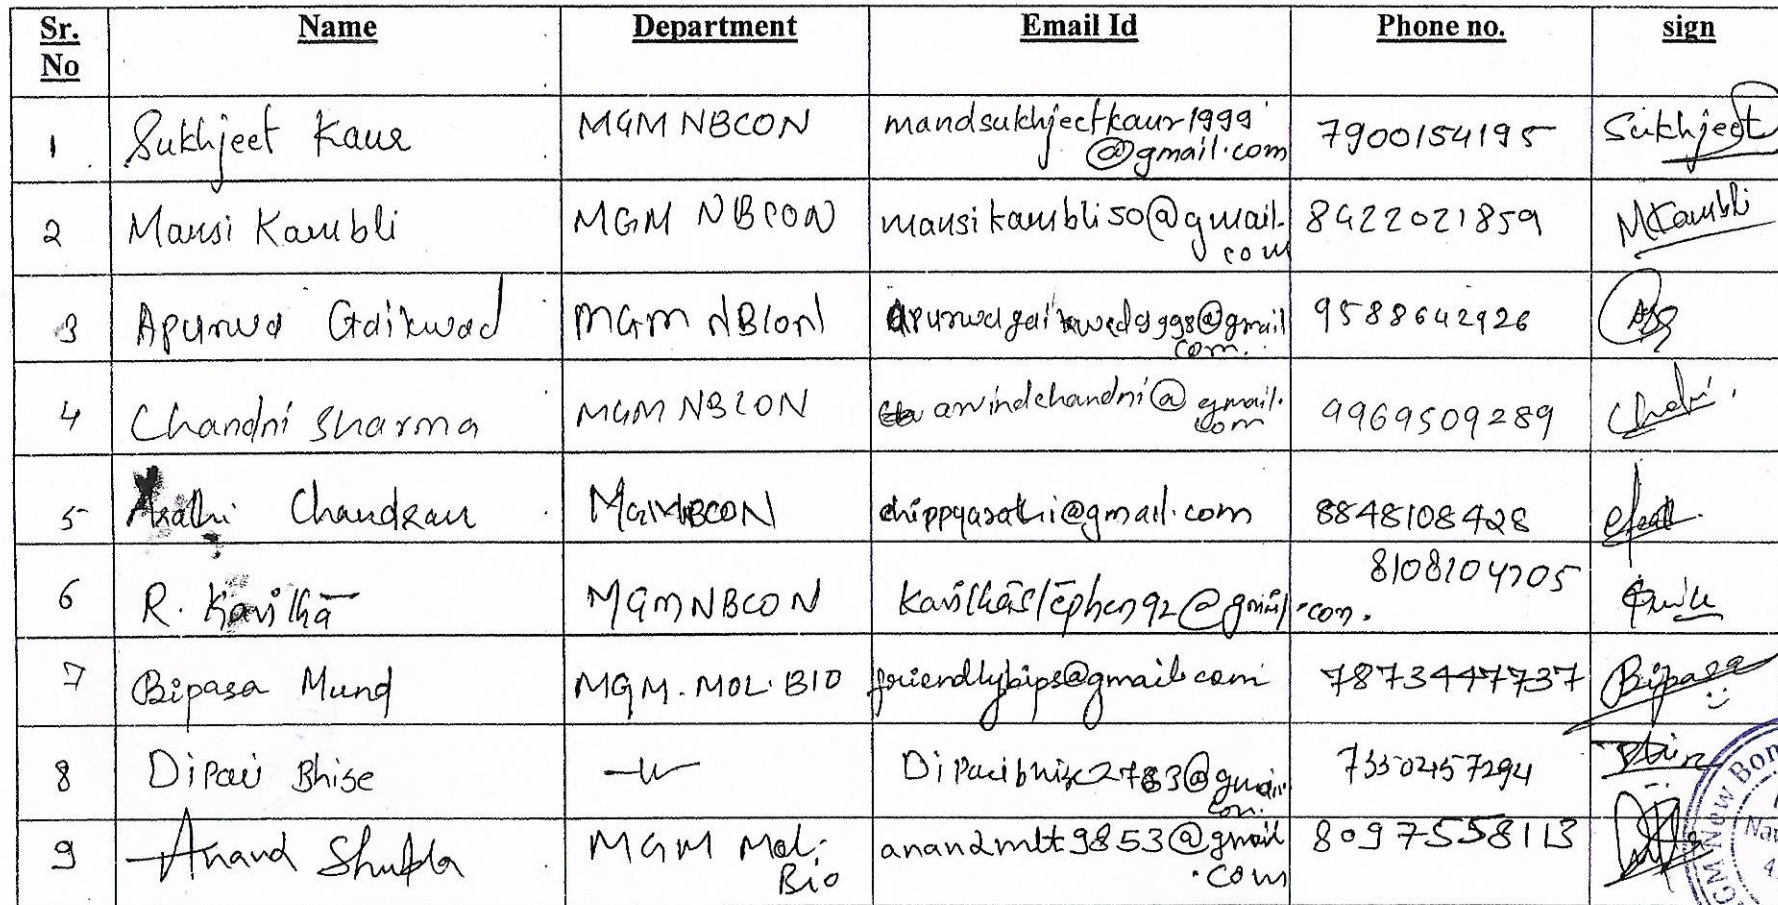 Sr. No Name Department Email Id Phone no. sign
1 Sukhjeet Kaur MGM NBCON mandsukhjeetkaur1999@gmail.com 7900154195 Sukhjeet
2 Mansi Kambli MGM NBCON mansikambli50@gmail.com 8422021859 MKambli
3 Apurwa Gaikwad MGM NBCON apurwagaikwad9998@gmail.com. 9588642926
4 Chandni Sharma MGM NBCON arvindchandni@gmail.com 9969509289
5 Arathi Chandran MGMNBCON chippyarathi@gmail.com 8848108428
6 R. Kavitha MGMNBCON kavithastephen92@gmail.com. 8108104705
7 Bipasa Mund MGM. MOL. BIO friendlybips@gmail.com 7873447737 Bipasa
8 Dipali Bhise Dipalibhise2783@gmail.com.
9 Anand Shukla MGM Mol. Bio anandmlt9853@gmail.com 8097558113
MGM New Bom
Nav